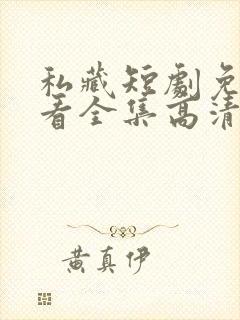 私藏短劇免
看全集高清
黄真伊